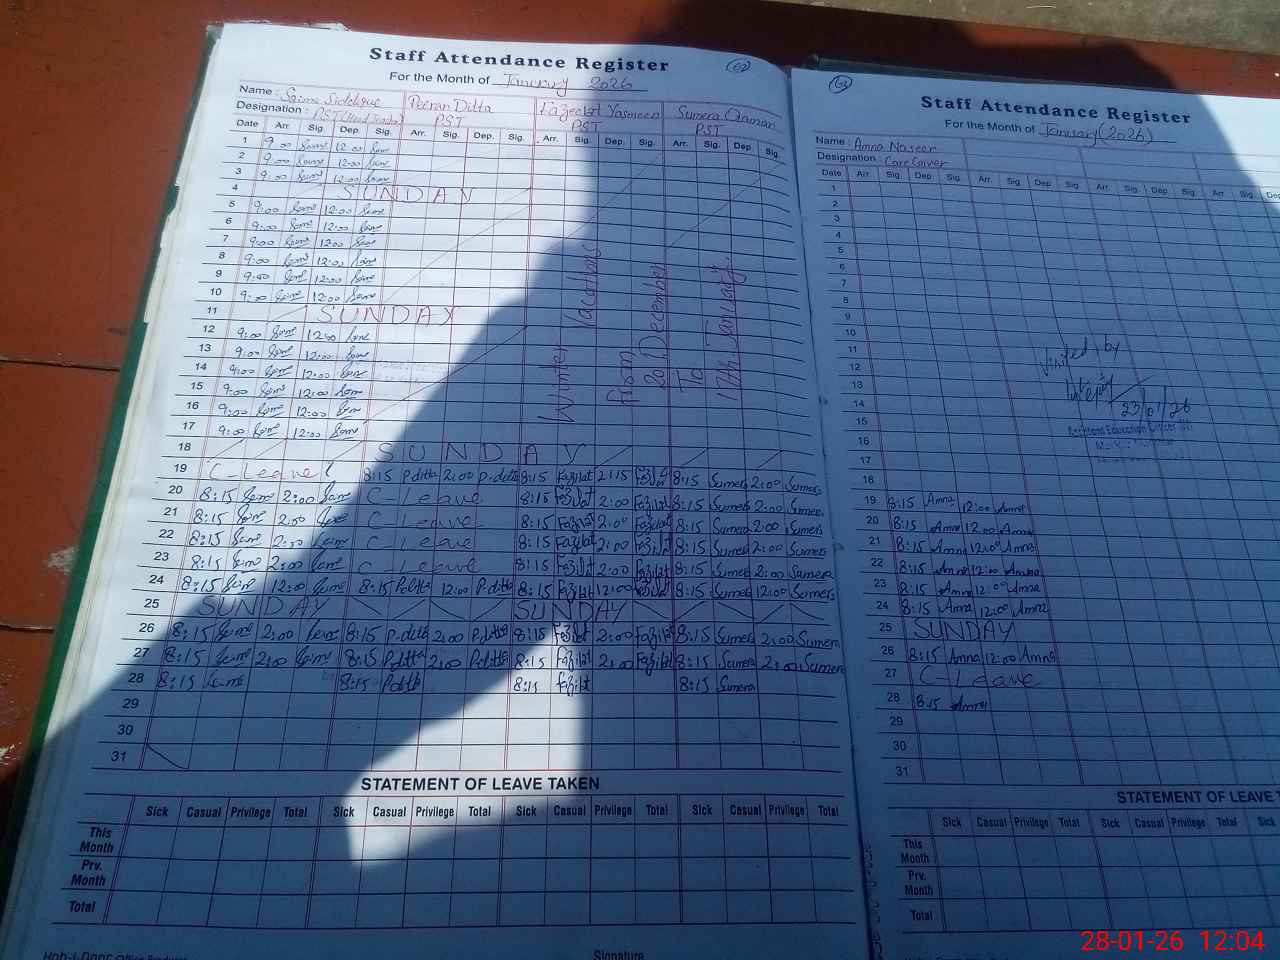 Staff Attendance Register
62
For the Month of Janerury 2026
Name : Saima Siddique Peeran Ditta Fazeelat Yasmeen Sumera Qamar
Designation : PST (Head Teacher) PST PST PST
Date Arr. Sig. Dep. Sig. Arr. Sig. Dep. Sig. Arr. Sig. Dep. Sig. Arr. Sig. Dep. Sig.
1 9:00 Same 12:00 Same
2 9:00 Same 12:00 Same
3 9:00 Same 12:00 Same
4 SUNDAY
5 9:00 Same 12:00 Same
6 9:00 Same 12:00 Same
7 9:00 Same 12:00 Same
8 9:00 Same 12:00 Same
9 9:00 Same 12:00 Same
10 9:00 Same 12:00 Same
11 SUNDAY
12 9:00 Same 12:00 Same
13 9:00 Same 12:00 Same
14 9:00 Same 12:00 Same
15 9:00 Same 12:00 Same
16 9:00 Same 12:00 Same
17 9:00 Same 12:00 Same
Winter Vacations
from
20 December
To
17th January.
18 SUNDAY
19 C-Leave 8:15 P.ditta 2:00 P.ditta 8:15 Fazilat 2:15 Fazilat 8:15 Sumera 2:00 Sumera
20 8:15 Same 2:00 Same C-Leave 8:15 Fazilat 2:00 Fazilat 8:15 Sumera 2:00 Sumera
21 8:15 Same 2:00 Same C-Leave 8:15 Fazilat 2:00 Fazilat 8:15 Sumera 2:00 Sumera
22 8:15 Same 2:00 Same C-Leave 8:15 Fazilat 2:00 Fazilat 8:15 Sumera 2:00 Sumera
23 8:15 Same 2:00 Same C-Leave 8:15 Fazilat 2:00 Fazilat 8:15 Sumera 2:00 Sumera
24 8:15 Same 12:00 Same 8:15 P.ditta 12:00 P.ditta 8:15 Fazilat 12:00 Fazilat 8:15 Sumera 12:00 Sumera
25 SUNDAY SUNDAY
26 8:15 Same 2:00 Same 8:15 P.ditta 2:00 P.ditta 8:15 Fazilat 2:00 Fazilat 8:15 Sumera 2:00 Sumera
27 8:15 Same 2:00 Same 8:15 P.ditta 2:00 P.ditta 8:15 Fazilat 2:00 Fazilat 8:15 Sumera 2:00 Sumera
28 8:15 Same 8:15 P.ditta 8:15 Fazilat 8:15 Sumera
29
30
31
STATEMENT OF LEAVE TAKEN
Sick Casual Privilege Total Sick Casual Privilege Total Sick Casual Privilege Total Sick Casual Privilege Total
This Month
Prv. Month
Total
Signature
Staff Attendance Register
For the Month of January (2026)
Name : Amna Naseer
Designation : Care Giver
Date Arr. Sig. Dep. Sig. Arr. Sig. Dep. Sig. Arr. Sig. Dep. Sig. Arr. Sig.
1
2
3
4
5
6
7
8
9
10
11
12
13
14
15
16
17
18
Visited by
23/01/26
Assistant Education Officer
19 8:15 Amna 12:00 Amna
20 8:15 Amna 12:00 Amna
21 8:15 Amna 12:00 Amna
22 8:15 Amna 12:00 Amna
23 8:15 Amna 12:00 Amna
24 8:15 Amna 12:00 Amna
25 SUNDAY
26 8:15 Amna 12:00 Amna
27 C-Leave
28 8:15 Amna
29
30
31
STATEMENT OF LEAVE T
Sick Casual Privilege Total Sick Casual Privilege Total Sick Casual
This Month
Prv. Month
Total
28-01-26 12:04